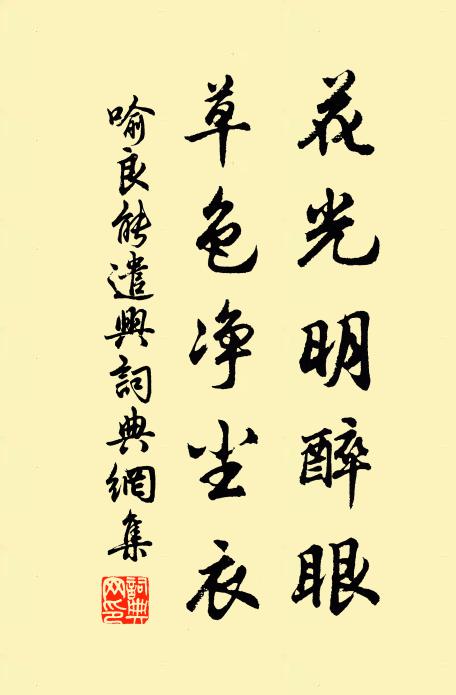 花光明醉眼
草色净尘衣
喻良能遣興詞典網集
詞典網印